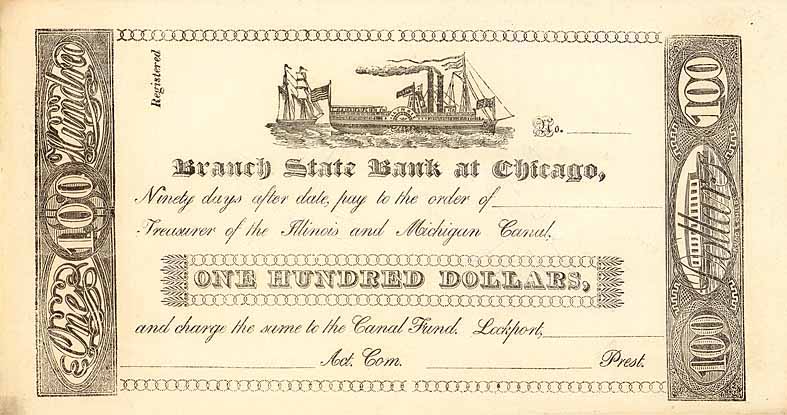 One 100 Hundred
Registered
No.
Branch State Bank at Chicago,
Ninety days after date, pay to the order of
Treasurer of the Illinois and Michigan Canal,
ONE HUNDRED DOLLARS,
and charge the same to the Canal Fund. Lockport,
Act. Com. Prest.
100
Dollars
100